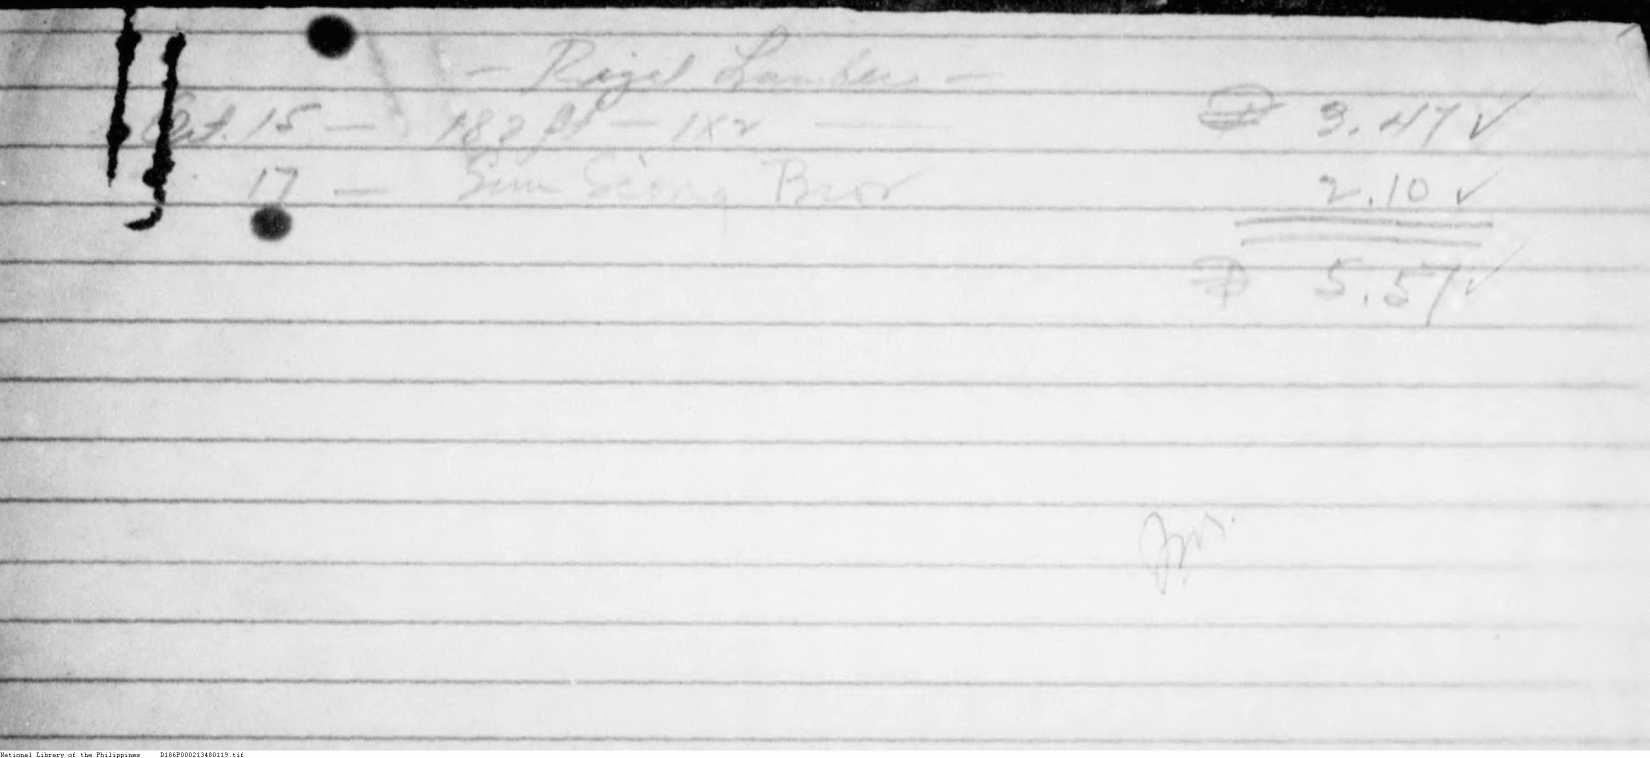 - Rizal Lumber -
Oct. 15 - 182 ft - 1x2 - ₱ 3.47 ✓
17 - Sim Siong Bros 2.10 ✓
₱ 5.57 ✓
National Library of the Philippines D186P000213480119.tif